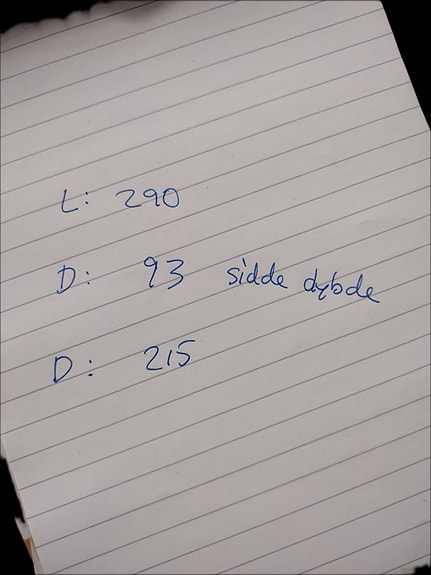 L: 290
D: 93 sidde dybde
D: 215